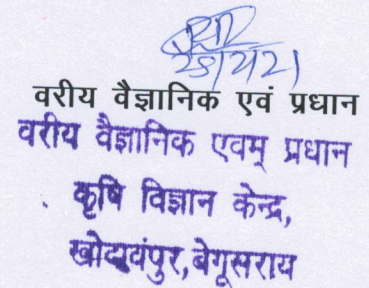 वरीय वैज्ञानिक एवं प्रधान
वरीय वैज्ञानिक एवम् प्रधान
कृषि विज्ञान केन्द्र,
खोदावंपुर, बेगूसराय